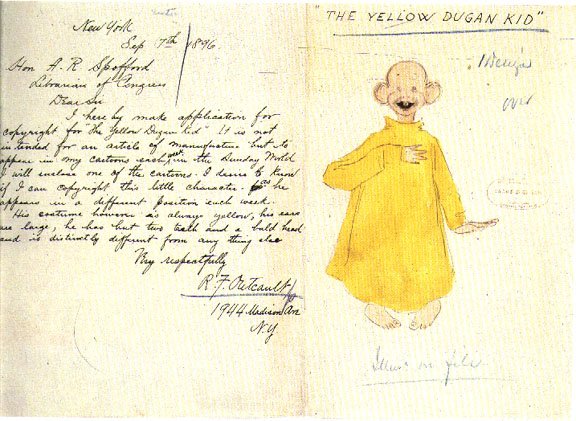 New York
Sep 7th 1896
Hon A. R. Spofford
Librarian of Congress
Dear Sir
I here by make application for
copyright for "The Yellow Dugan Kid" It is not
intended for an article of manufacture but to
appear in my cartoons each week in the Sunday World
I will enclose one of the cartoons. I desire to know
if I can copyright this little character. as he
appears in a different position each week.
His costume however is always yellow, his ears
are large, he has but two teeth and a bald head
and is distinctly different from any thing else
Very respectfully
R. F. Outcault
1944 Madison Ave
N.Y.
"THE YELLOW DUGAN KID"
over
on file